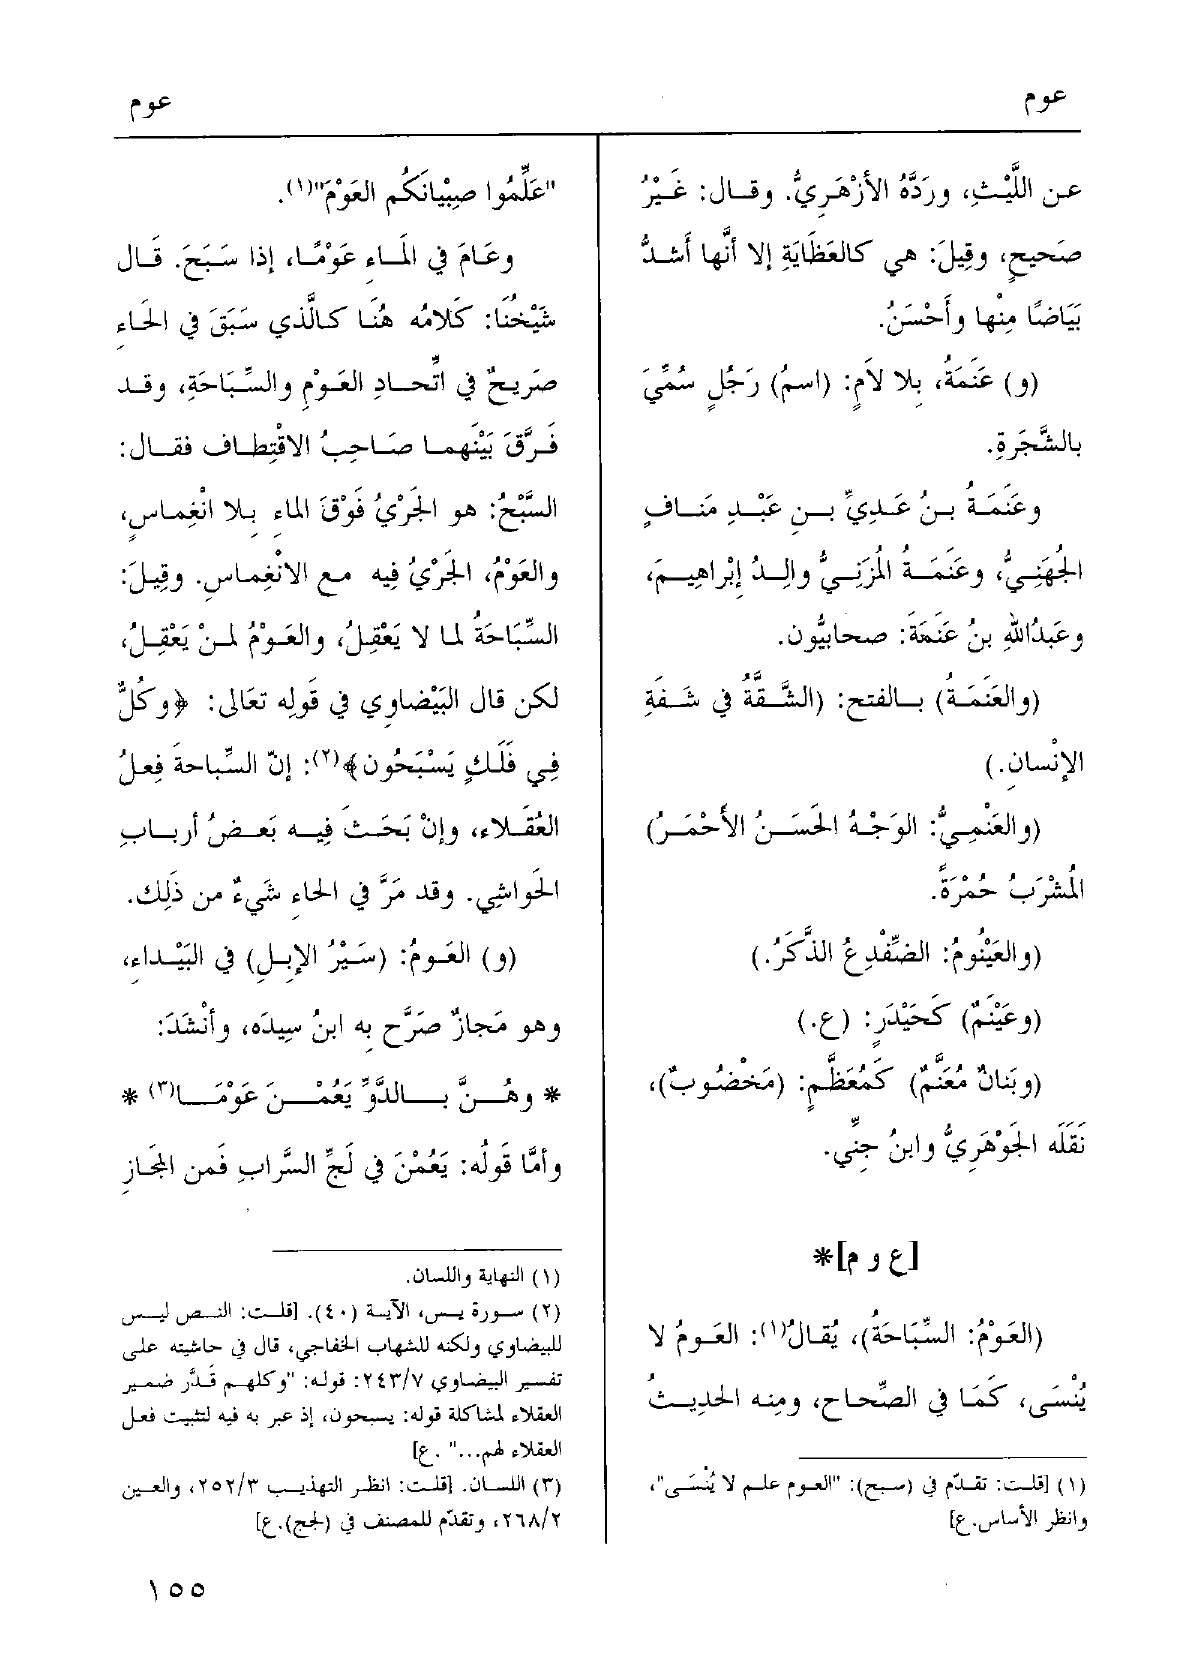 عوم
عوم
عن اللَّيْثِ، ورَدَّهُ الأزْهَرِيُّ. وقال: غَيْرُ
صَحيحٍ، وقِيلَ: هي كالعَظَايَةِ إلا أنَّها أشدُّ
بَيَاضًا مِنْها وأَحْسَنُ.
(و) عَنَمَةُ، بِلا لاَمٍ: (اسمُ) رَجُلٍ سُمِّيَ
بالشَّجَرةِ.
وعَنَمَةُ بنُ عَدِيِّ بنِ عَبْدِ مَنافٍ
الجُهَنِيُّ، وعَنَمَةُ المُزَنِيُّ والِدُ إبْراهِيمَ،
وعَبدُاللهِ بنُ عَنَمَة: صحابيُّون.
(والعَنَمَةُ) بالفتح: (الشَّقَّةُ في شَفَةِ
الإنْسان.)
(والعَنْمِيُّ: الوَجْهُ الحَسَنُ الأَحْمَرُ)
المُشْرَبُ حُمْرَةً.
(والعَيْنُومُ: الضِّفْدِعُ الذَّكَرُ.)
(وعَيْنَمٌ) كَحَيْدَرٍ: (ع.)
(وبَنانٌ مُعَنَّمٌ) كَمُعَظَّمٍ: (مَخْضُوبٌ)،
نَقَلَه الجَوْهَرِيُّ وابنُ جِنِّي.
[ع و م]*
(العَوْمُ: السِّبَاحَةُ)، يُقالُ(١): العَومُ لا
يُنْسَى، كَمَا في الصِّحاح، ومِنه الحَدِيثُ
(١) [قلت: تقدّم في (سبح): "العوم علم لا يُنْسَى"،
وانظر الأساس.ع]
"عَلِّمُوا صِبْيانَكُم العَوْمَ"(١).
وعَامَ في المَاءِ عَوْمًا، إذا سَبَحَ. قَال
شَيْخُنَا: كَلامُه هُنَا كالَّذي سَبَقَ في الحَاءِ
صَرِيحٌ في اتِّحادِ العَوْمِ والسِّبَاحَةِ، وقد
فَرَّقَ بَيْنَهما صَاحِبُ الاقْتِطاف فقال:
السَّبْحُ: هو الجَرْيُ فَوْقَ الماءِ بِلا انْغِماسٍ،
والعَوْمُ، الجَرْيُ فِيه مع الانْغِماس. وقِيلَ:
السِّبَاحَةُ لما لا يَعْقِلُ، والعَوْمُ لمنْ يَعْقِلُ،
لكن قال البَيْضاوي في قَولِه تَعَالى: ﴿وكُلٌّ
فِي فَلَكٍ يَسْبَحُون﴾(٢): إنّ السِّباحَةَ فِعلُ
العُقَلاء، وإنْ بَحَثَ فِيه بَعضُ أربابِ
الحَواشِي. وقد مَرَّ في الحاءِ شَيءٌ من ذَلِك.
(و) العَومُ: (سَيْرُ الإبلِ) في البَيْداء،
وهو مَجازٌ صَرَّح بِه ابنُ سِيدَه، وأنْشَدَ:
* وهُنَّ بالدَّوِّ يَعُمْنَ عَوْمَا(٣) *
وأمَّا قَولُه: يَعُمْنَ في لَجِّ السَّرابِ فَمن المَجَازِ
(١) النهاية واللسان.
(٢) سورة يس، الآية (٤٠). [قلت: النص ليس
للبيضاوي ولكنه للشهاب الخفاجي، قال في حاشيته على
تفسير البيضاوي ٢٤٣/٧: قوله: "وكلهم قَدَّر ضمير
العقلاء لمشاكلة قوله: يسبحون، إذ عبر به فيه لتثبيت فعل
العقلاء لهم...". ع]
(٣) اللسان. [قلت: انظر التهذيب ٢٥٢/٣، والعين
٢٦٨/٢، وتقدّم للمصنف في (لجج).ع]
١٥٥